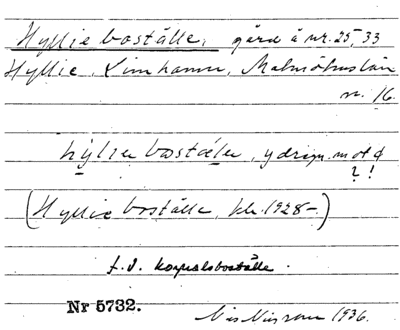 Hyllie boställe, gård å nr. 25, 33
Hyllie, Limhamn, Malmöhus län
nr. 16.
hylier bostæler,
? !
(Hyllie boställe, kh. 1928–)
f.d. korpralsboställe.
Nr 5732.
Nils Nilsson 1936.